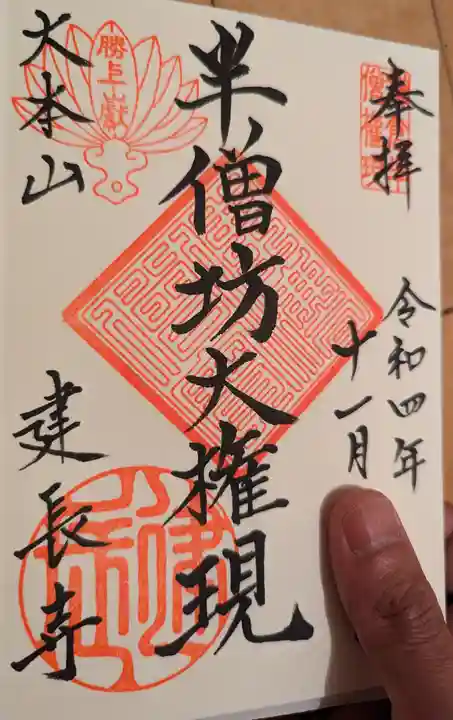 奉拝
令和四年
十一月
半僧坊大権現
勝上山獻
大本山
建長寺